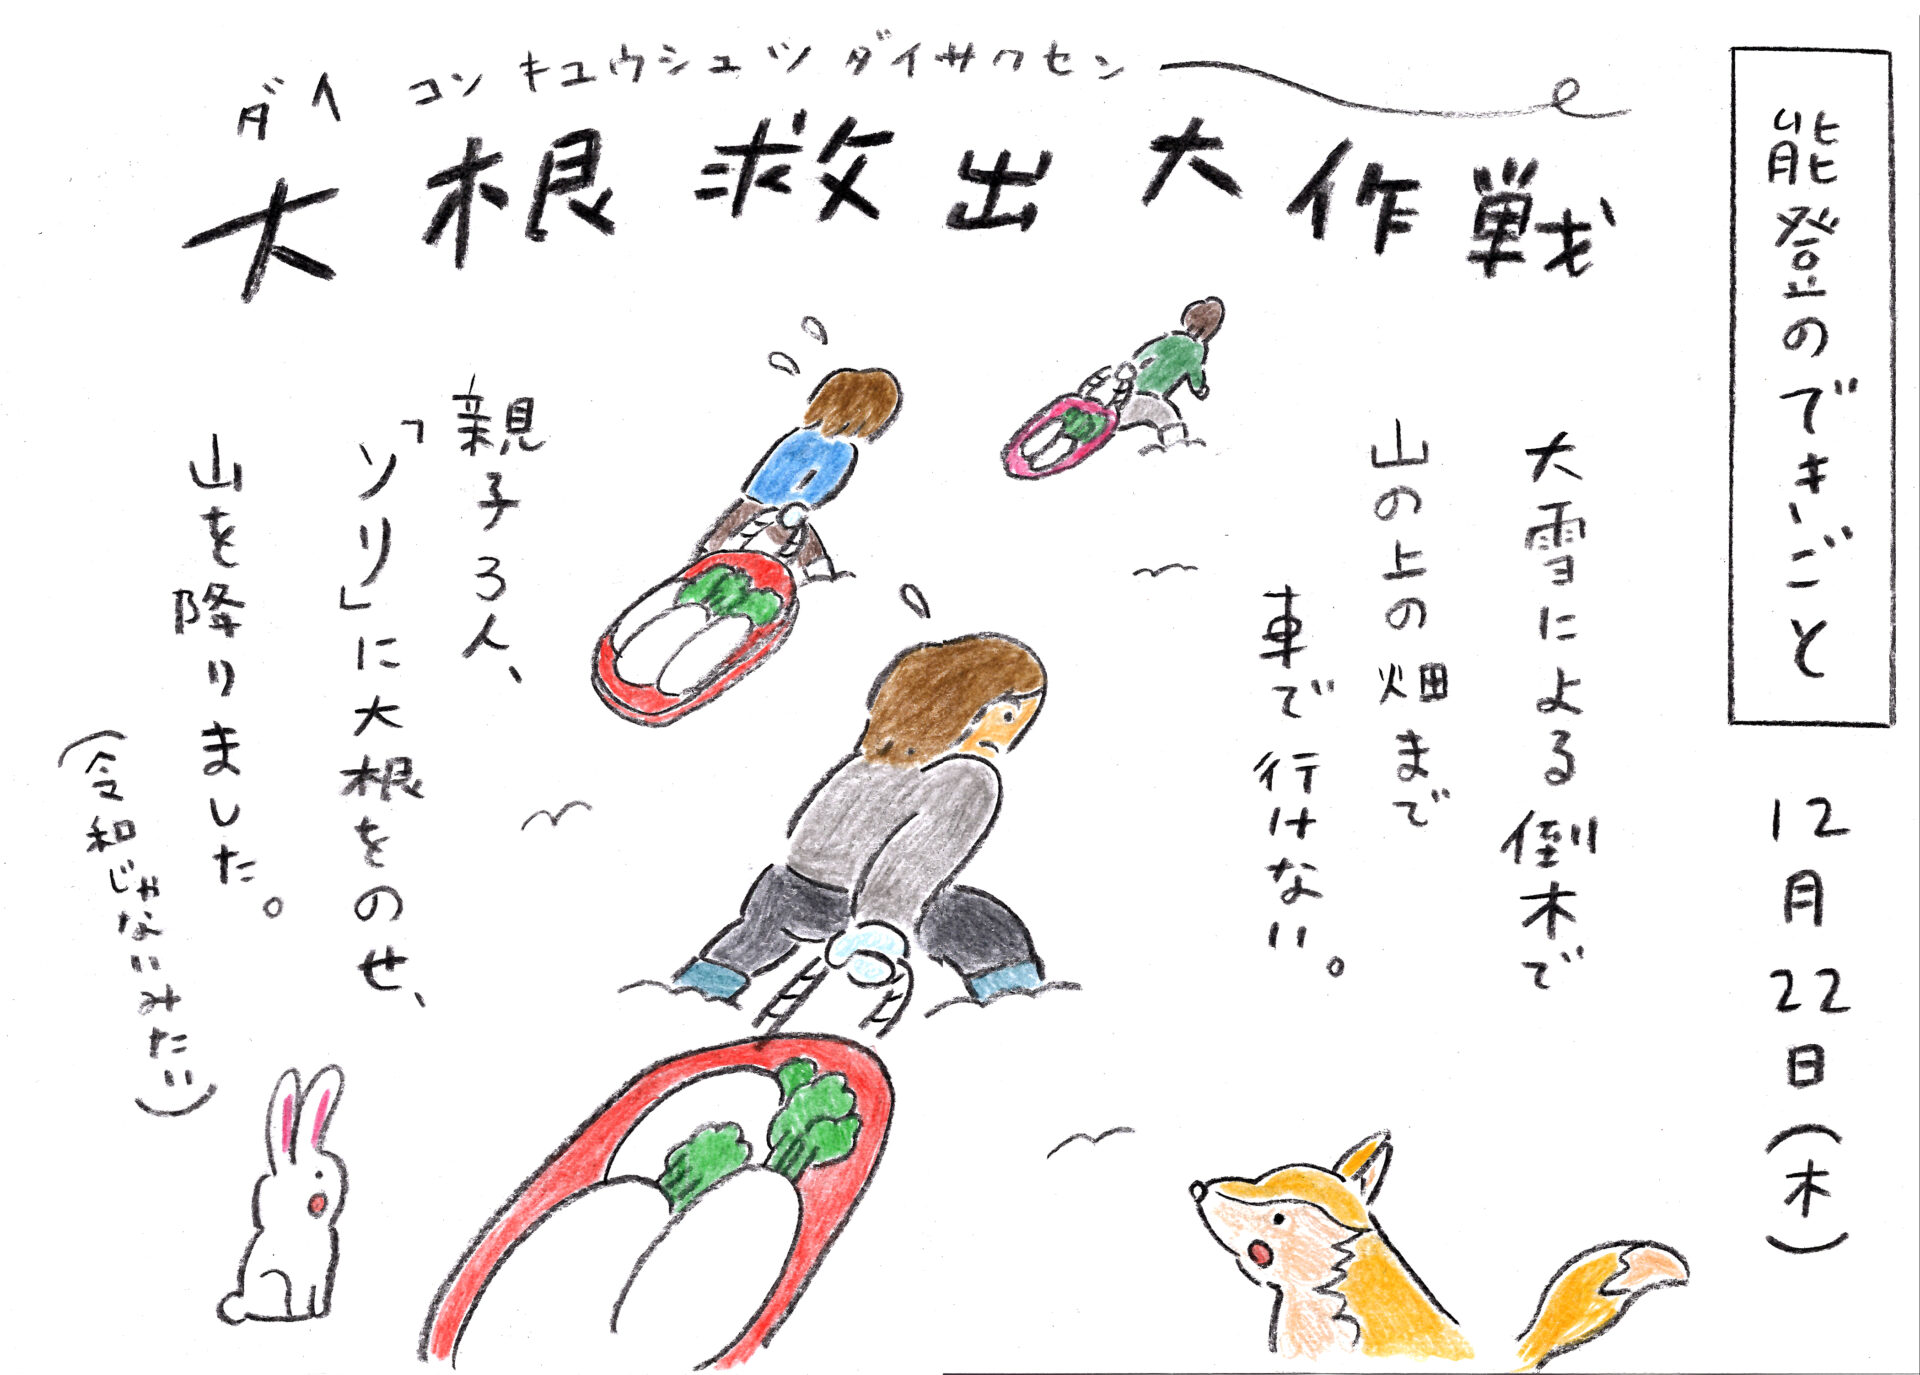 能登のできごと
12月22日(木)
ダイコンキュウシュツダイサクセン
大根救出大作戦
大雪による倒木で
山の上の畑まで
車で行けない。
親子3人、
「ソリ」に大根をのせ、
山を降りました。
(令和じゃないみたい)